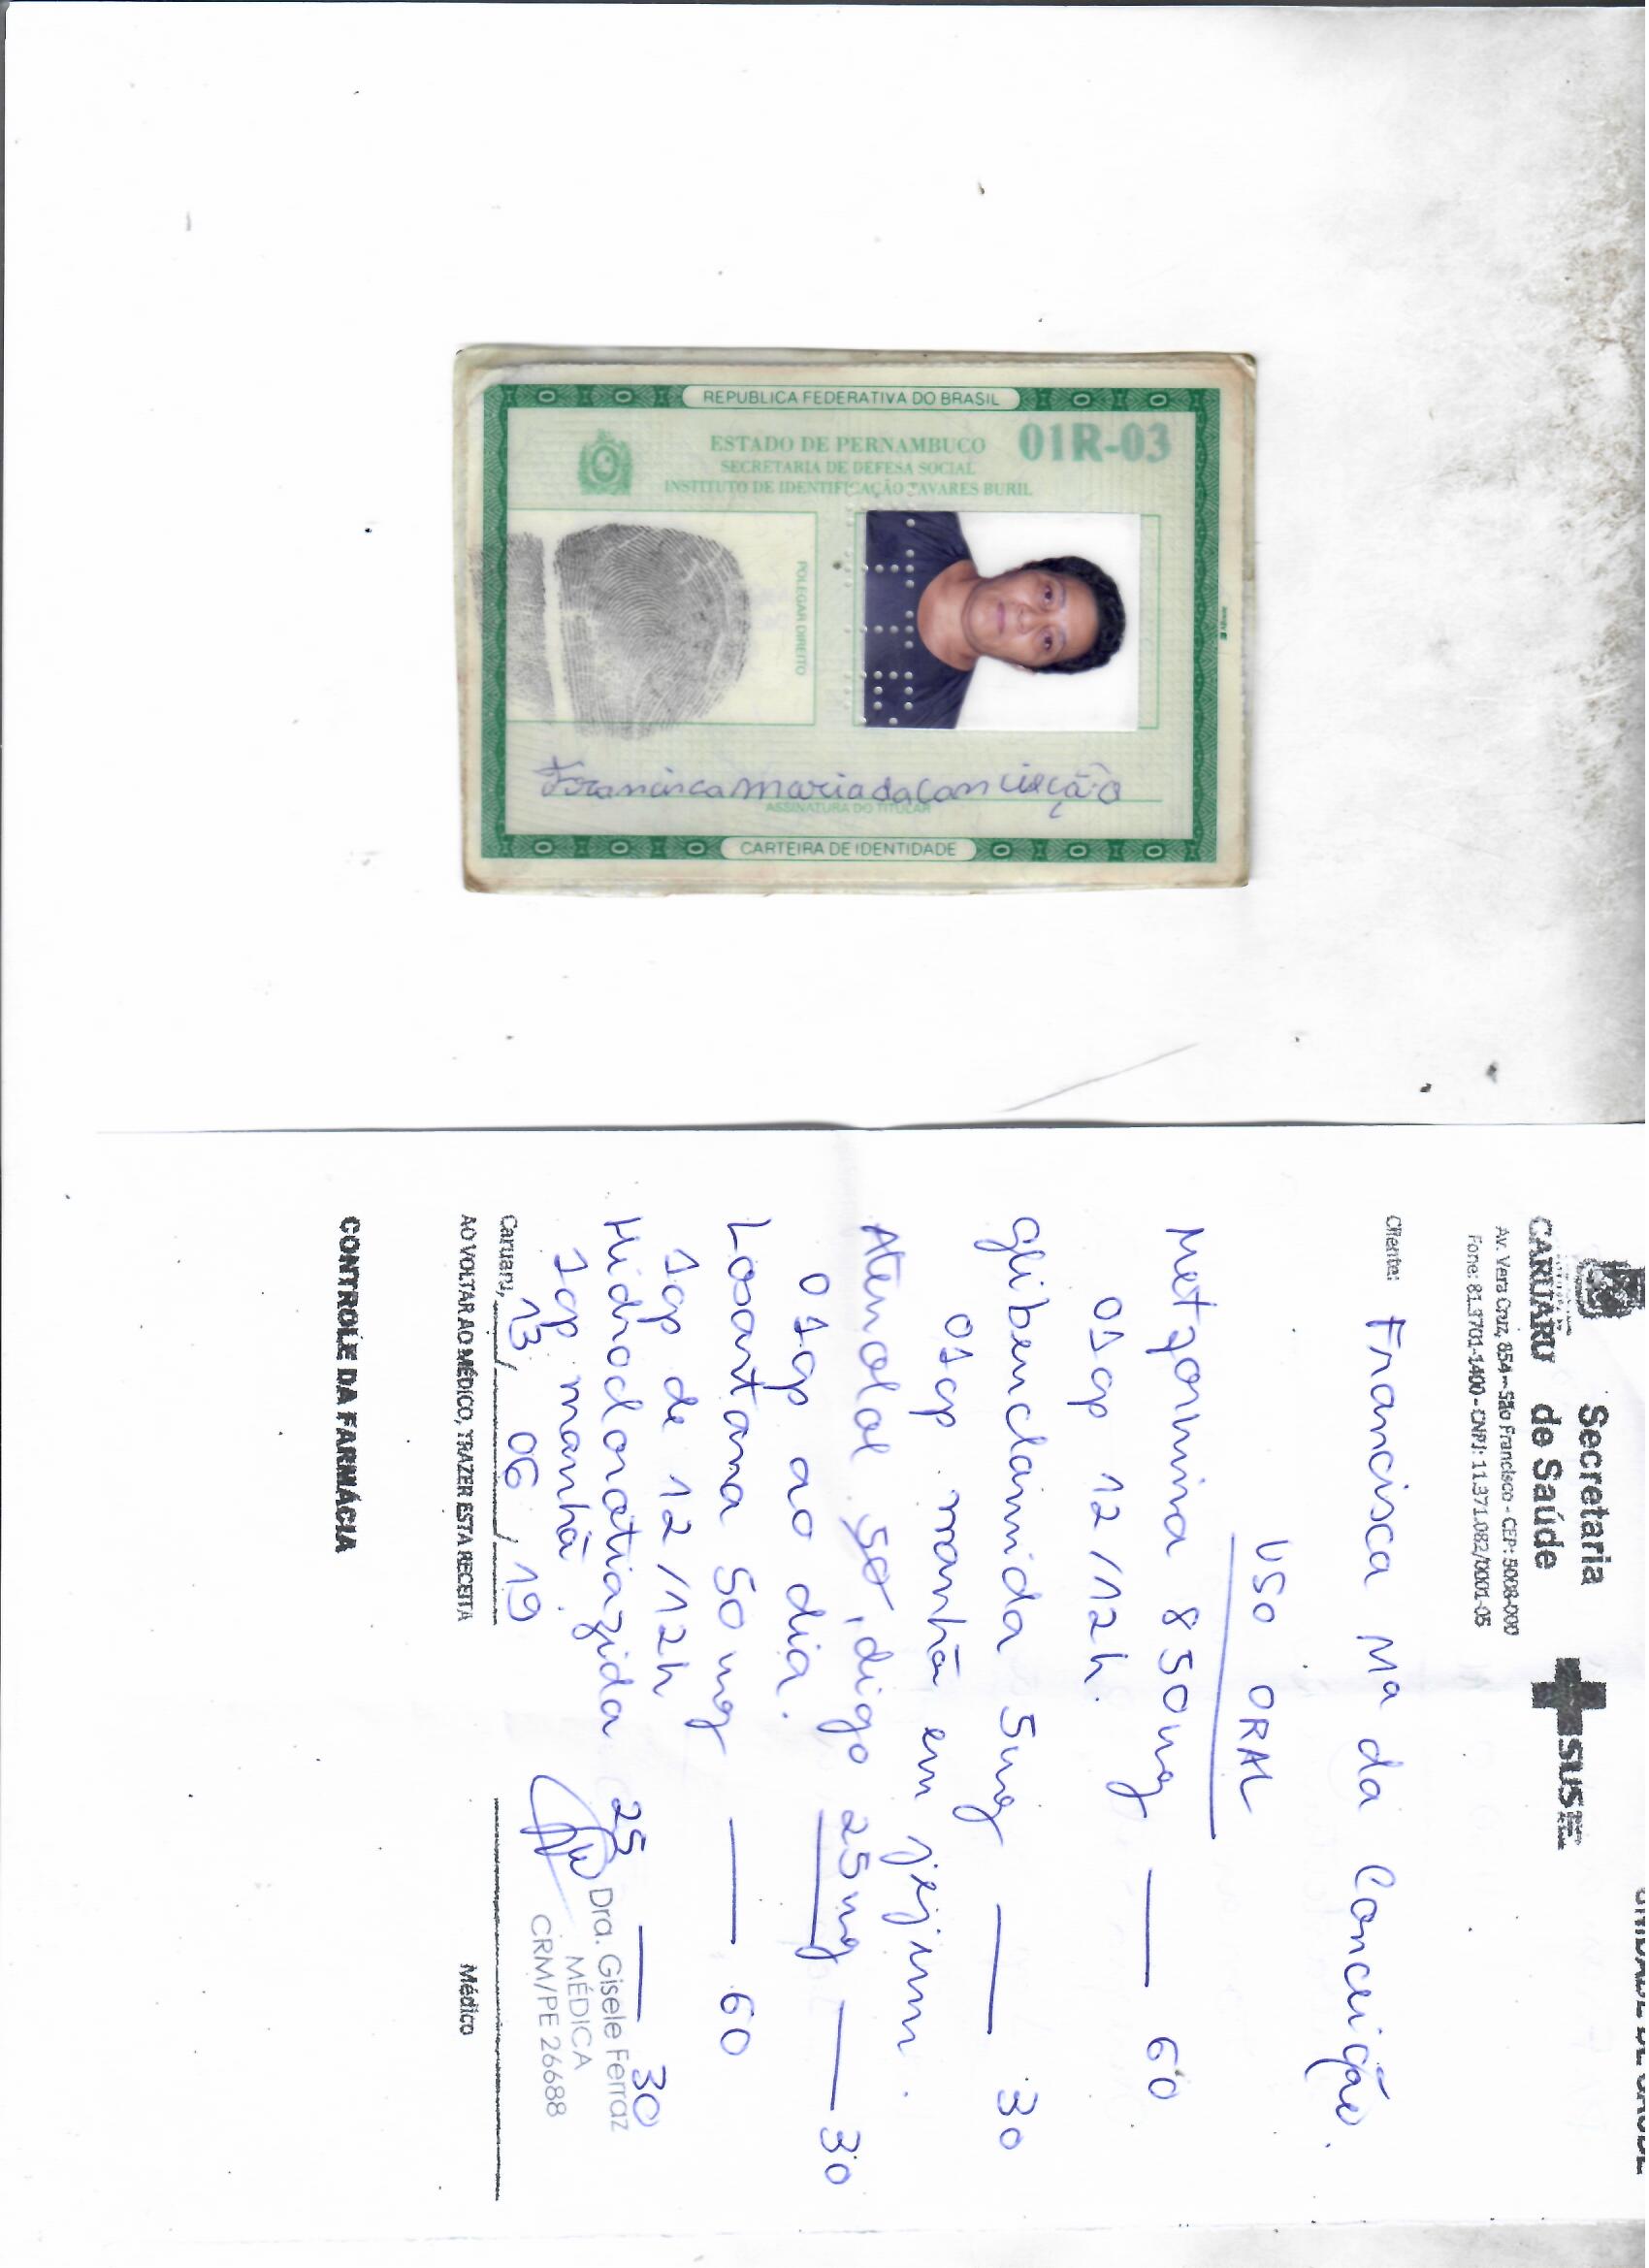 REPÚBLICA FEDERATIVA DO BRASIL
ESTADO DE PERNAMBUCO
01R-03
SECRETARIA DE DEFESA SOCIAL
INSTITUTO DE IDENTIFICAÇÃO TAVARES BURIL
POLEGAR DIREITO
Francisca maria da Conceição
ASSINATURA DO TITULAR
CARTEIRA DE IDENTIDADE
UNIDADE DE SAÚDE
Secretaria
CARUARU de Saúde
SUS
Av. Vera Cruz, 654 - São Francisco - CEP: 5008-000
Fone: 81.3701-1400 - CNPJ: 11.371.082/0001-05
Cliente: Francisca Ma da Conceição.
USO ORAL
Metformina 850mg — 60
01cp 12/12h.
Glibenclamida 5mg — 30
01cp manhã em jejum.
Atenolol 50, digo 25mg — 30
01cp ao dia.
Losartana 50mg — 60
1cp de 12/12h
Hidroclorotiazida 25 — 30
1cp manhã.
Dra. Gisele Ferraz
MÉDICA
CRM/PE 26688
Caruaru, 13 / 06 / 19
Médico
AO VOLTAR AO MÉDICO, TRAZER ESTA RECEITA
CONTROLE DA FARMÁCIA